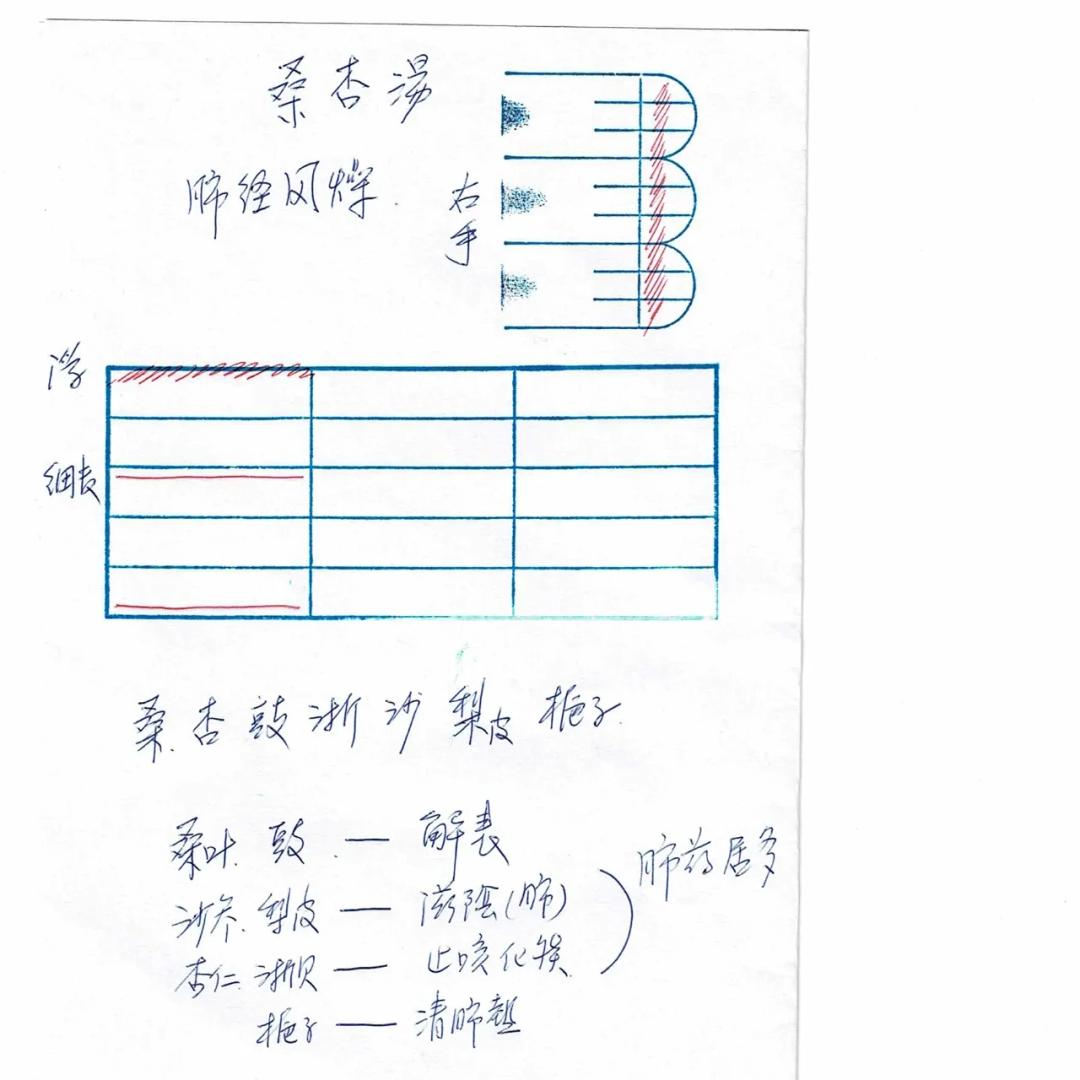 桑杏湯
肺经风燥.
右手
浮
细
桑.杏豉浙沙梨皮栀子.
桑叶.豉.— 解表
沙参.梨皮 — 滋陰(肺)
杏仁.浙贝 — 止咳化痰.
栀子 — 清肺热
肺药居多